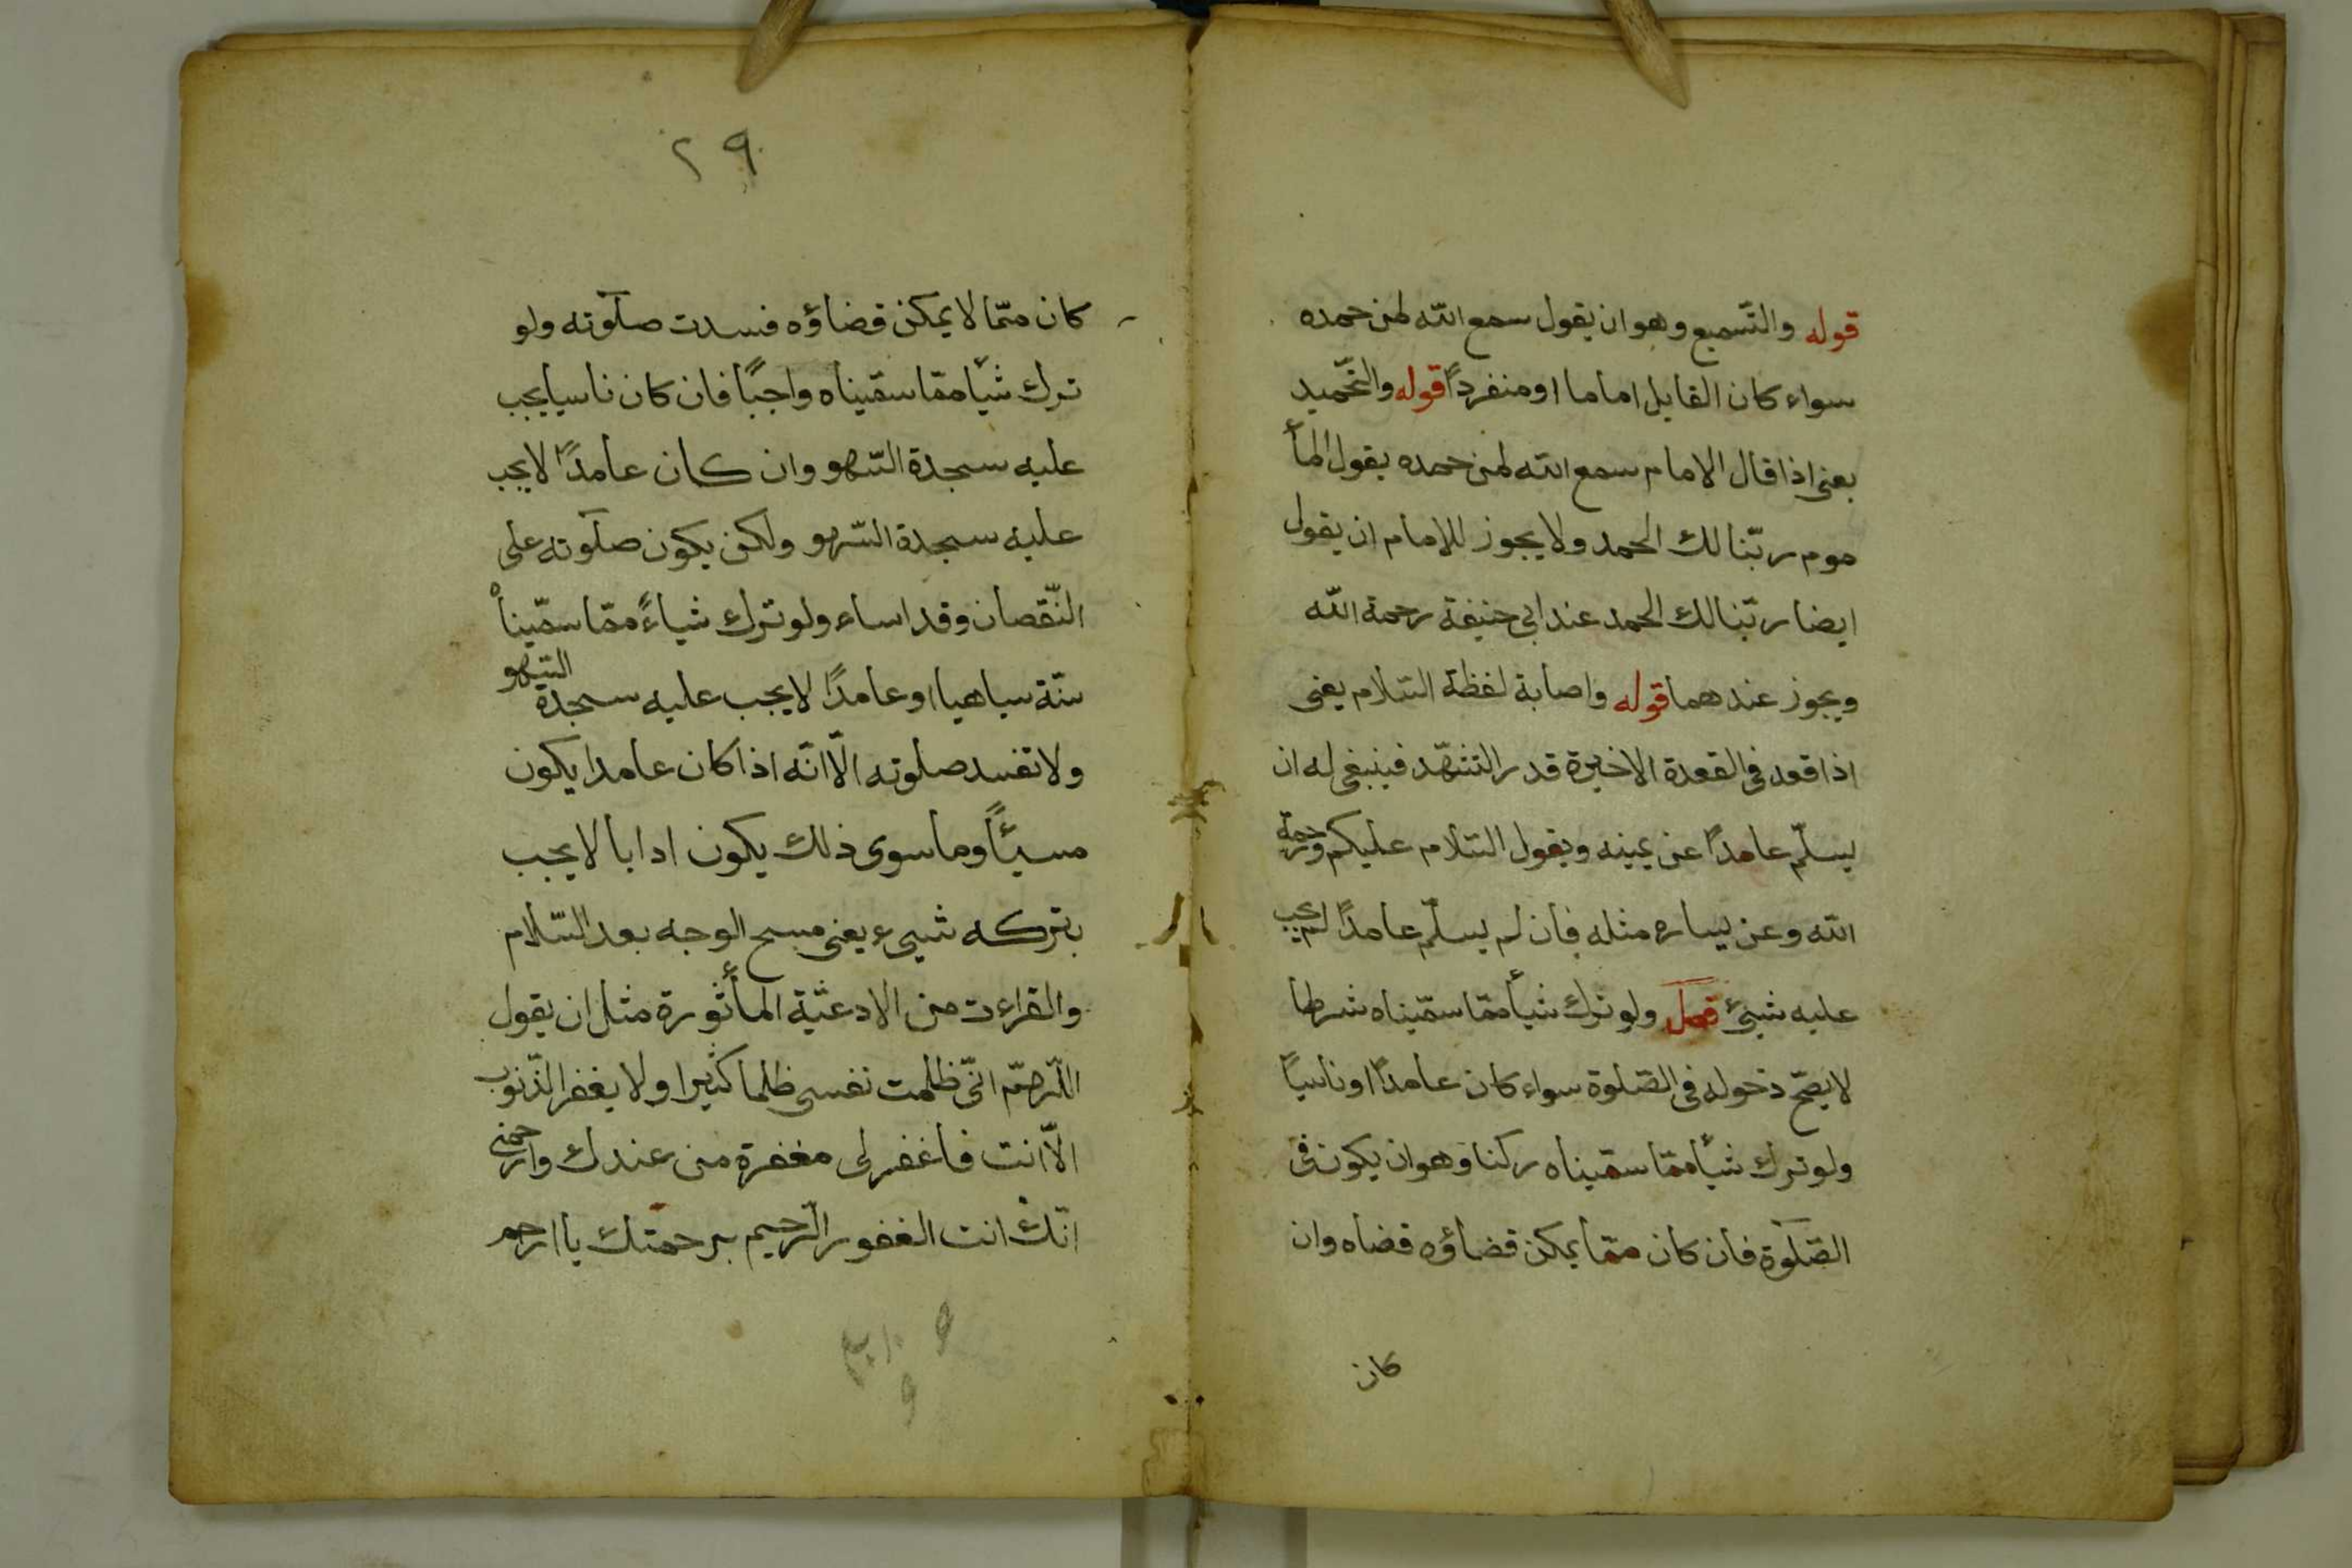 قوله والتّسميع وهو ان يقول سمع الله لمن حمده
سواء كان القايل اماما او منفردًا قوله والتّحميد
يعنى اذا قال الامام سمع الله لمن حمده يقول المأ
موم ربّنا لك الحمد ولا يجوز للامام ان يقول
ايضا ربّنا لك الحمد عند ابى حنيفة رحمة الله
ويجوز عندهما قوله واصابة لفظة السّلام يعنى
اذا قعد فى القعدة الاخيرة قدر التشهّد فينبغى له ان
يسلّم عامدًا عن يمينه ويقول السّلام عليكم ورحمة
الله وعن يساره مثله فان لم يسلّم عامدًا لم يجب
عليه شيئ فصل ولو ترك شيأ ممّا سمّيناه شرطا
لا يصحّ دخوله فى الصّلوة سواء كان عامدًا او ناسيًا
ولو ترك شيأ ممّا سمّيناه ركنا وهو ان يكون فى
الصّلوة فان كان ممّا يمكن قضاؤه قضاه وان
كان
٢٩
كان ممّا لا يمكن قضاؤه فسدت صلوته ولو
ترك شيأ ممّا سمّيناه واجبًا فان كان ناسيا يجب
عليه سجدة السّهو وان كان عامدًا لا يجب
عليه سجدة السّهو ولكن يكون صلوته على
النّقصان وقد اساء ولو ترك شياءً ممّا سمّيناه
سنّة ساهيا او عامدًا لا يجب عليه سجدة السّهو
ولا تفسد صلوته الّا انّه اذا كان عامدا يكون
مسيئًا وما سوى ذلك يكون ادابا لا يجب
بتركه شيىء يعنى مسح الوجه بعد السّلام
والقراءت من الادعئية المأثورة مثل ان يقول
اللّهمّ انّى ظلمت نفسى ظلما كثيرا ولا يغفر الذّنوب
الّا انت فاغفر لى مغفرة من عندك وارحمنى
انّك انت الغفور الرّحيم برحمتك يا ارحم